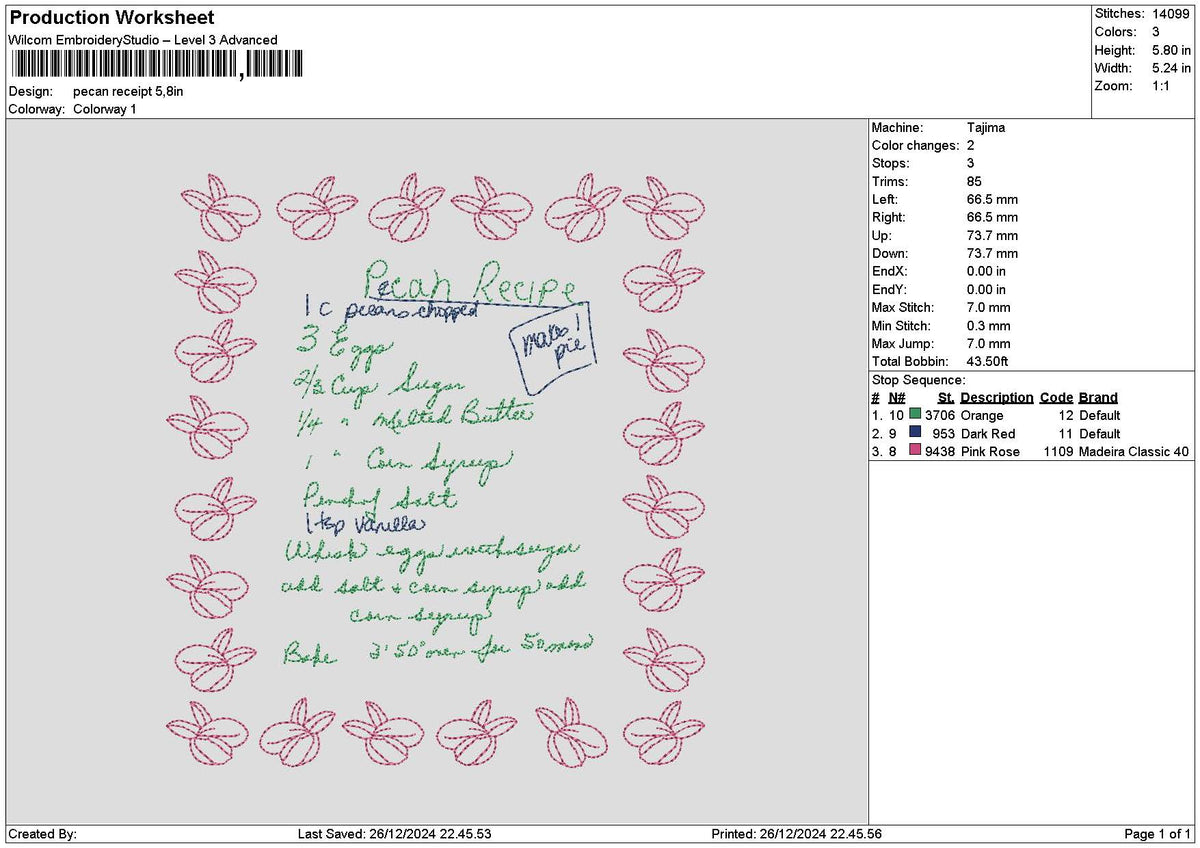 Production Worksheet
Wilcom EmbroideryStudio – Level 3 Advanced
Design: pecan receipt 5,8in
Colorway: Colorway 1
Stitches: 14099
Colors: 3
Height: 5.80 in
Width: 5.24 in
Zoom: 1:1
Pecan Recipe
1 c pecans chopped
makes 1
pie
3 Eggs
2/3 Cup Sugar
1/4 " melted Butter
1 " Corn Syrup
Pinch of Salt
1 tsp vanilla
Whisk eggs with sugar
add salt + corn syrup add
corn syrup
Bake 350° oven for 50 mins
Machine: Tajima
Color changes: 2
Stops: 3
Trims: 85
Left: 66.5 mm
Right: 66.5 mm
Up: 73.7 mm
Down: 73.7 mm
EndX: 0.00 in
EndY: 0.00 in
Max Stitch: 7.0 mm
Min Stitch: 0.3 mm
Max Jump: 7.0 mm
Total Bobbin: 43.50ft
Stop Sequence:
# N# St. Description Code Brand
1. 10 3706 Orange 12 Default
2. 9 953 Dark Red 11 Default
3. 8 9438 Pink Rose 1109 Madeira Classic 40
Created By: Last Saved: 26/12/2024 22.45.53 Printed: 26/12/2024 22.45.56 Page 1 of 1